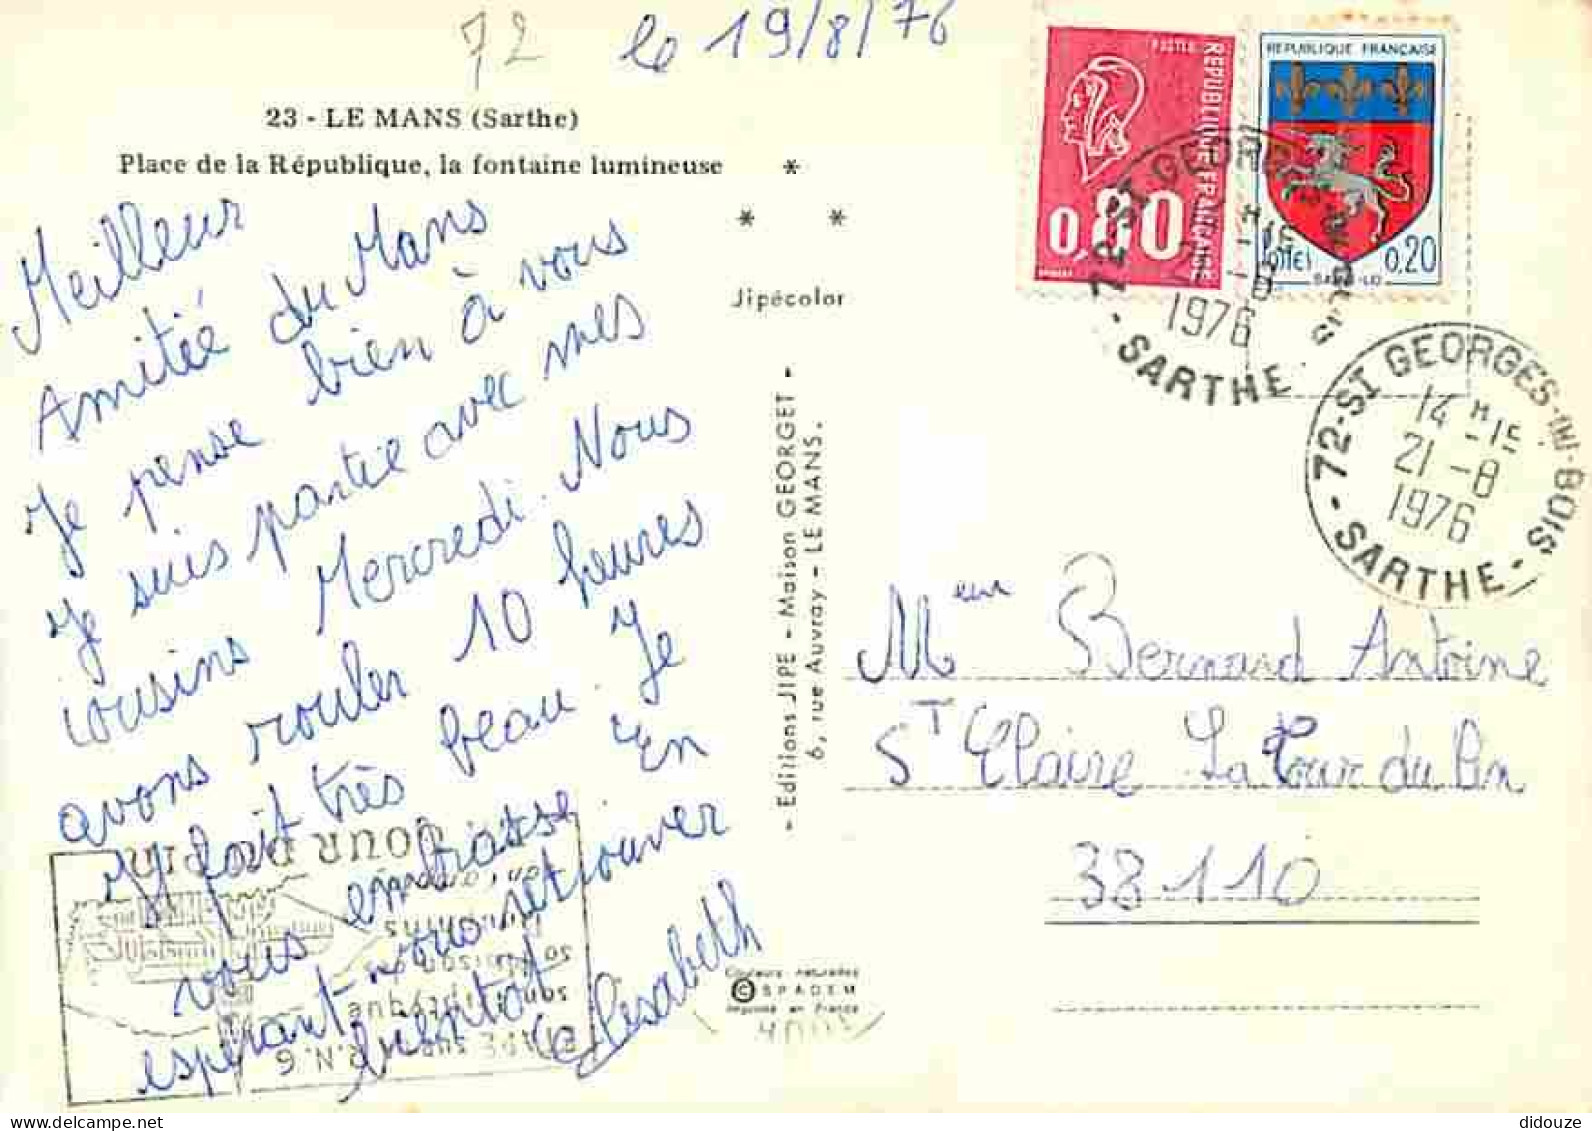 72
le 19/8/76
23 - LE MANS (Sarthe)
Place de la République, la fontaine lumineuse
Jipécolor
Meilleur
Amitié du Mans
Je pense bien à vous
Je suis partie avec mes
cousins Mercredi. Nous
avons rouler 10 heures
Il fait très beau. Je
vous embrasse En
espérant vous retrouver
bientot
Elisabeth
- Editions JIPE - Maison GEORGET -
6, rue Auvray - LE MANS.
Couleurs naturelles
© SPADEM
Imprimé en France
POSTES
REPUBLIQUE FRANÇAISE
0,80
REPUBLIQUE FRANÇAISE
0,20
SAINT-LO
72-ST GEORGES-DU-BOIS
1976
- SARTHE -
72-ST GEORGES-DU-BOIS
14 H 15
21 - 8
1976
- SARTHE -
Meur Bernard Antoine
ST Claire La Tour du Pin
38110
TOUR DU PIN
R.N. 6
didouze